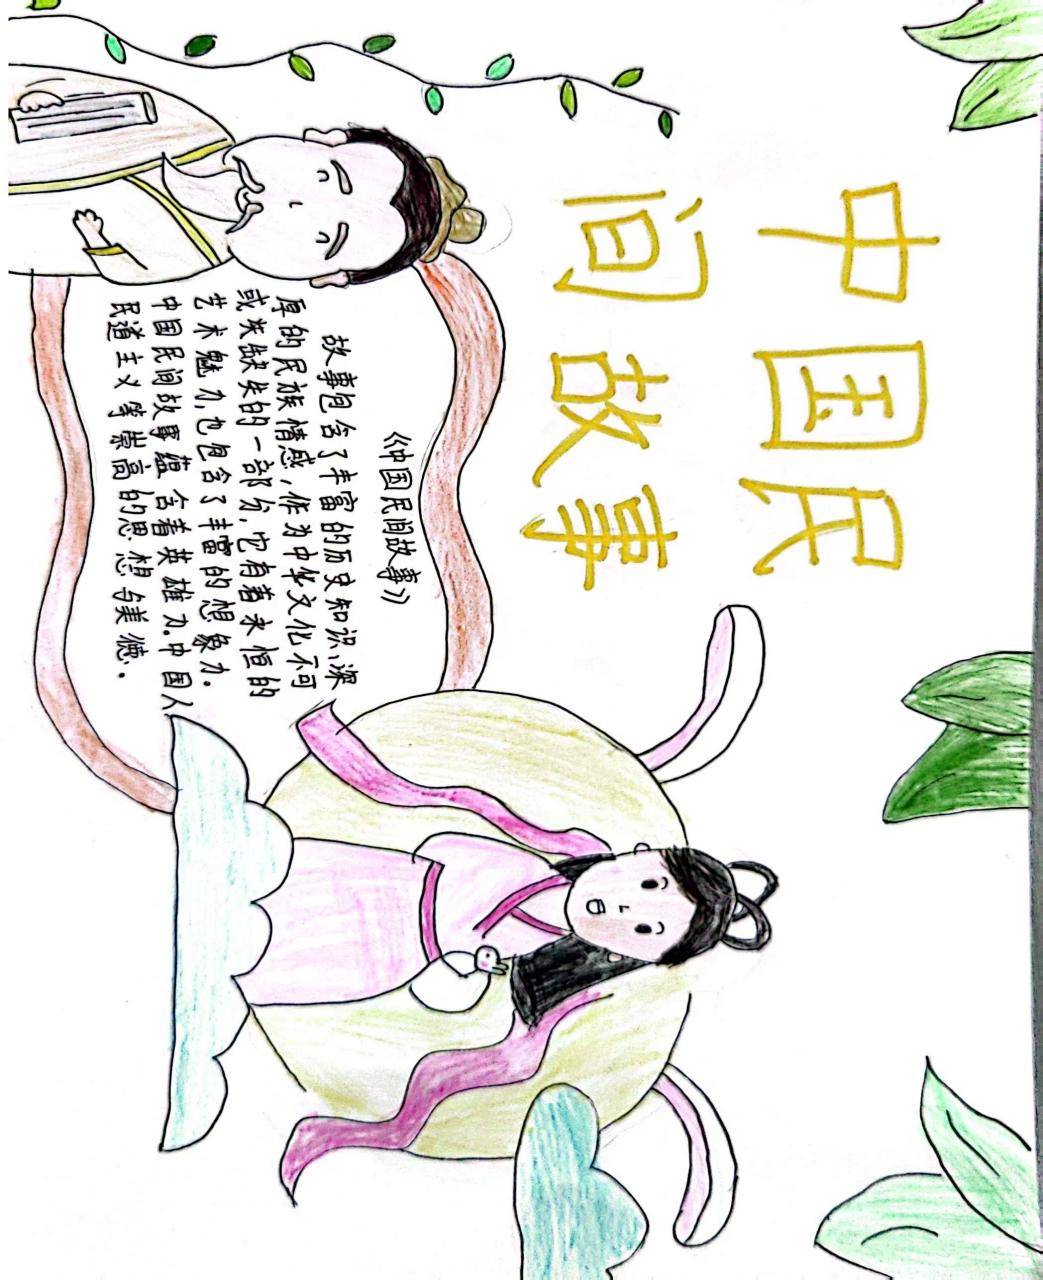 中国民
间故事
《中国民间故事》
故事包含了丰富的历史知识、深
厚的民族情感,作为中华文化不可
或失缺失的一部份,它有着永恒的
艺术魅力,也包含了丰富的想象力。
中国民间故事蕴含着英雄力.中国人
民道主义等崇高的思想与美德.